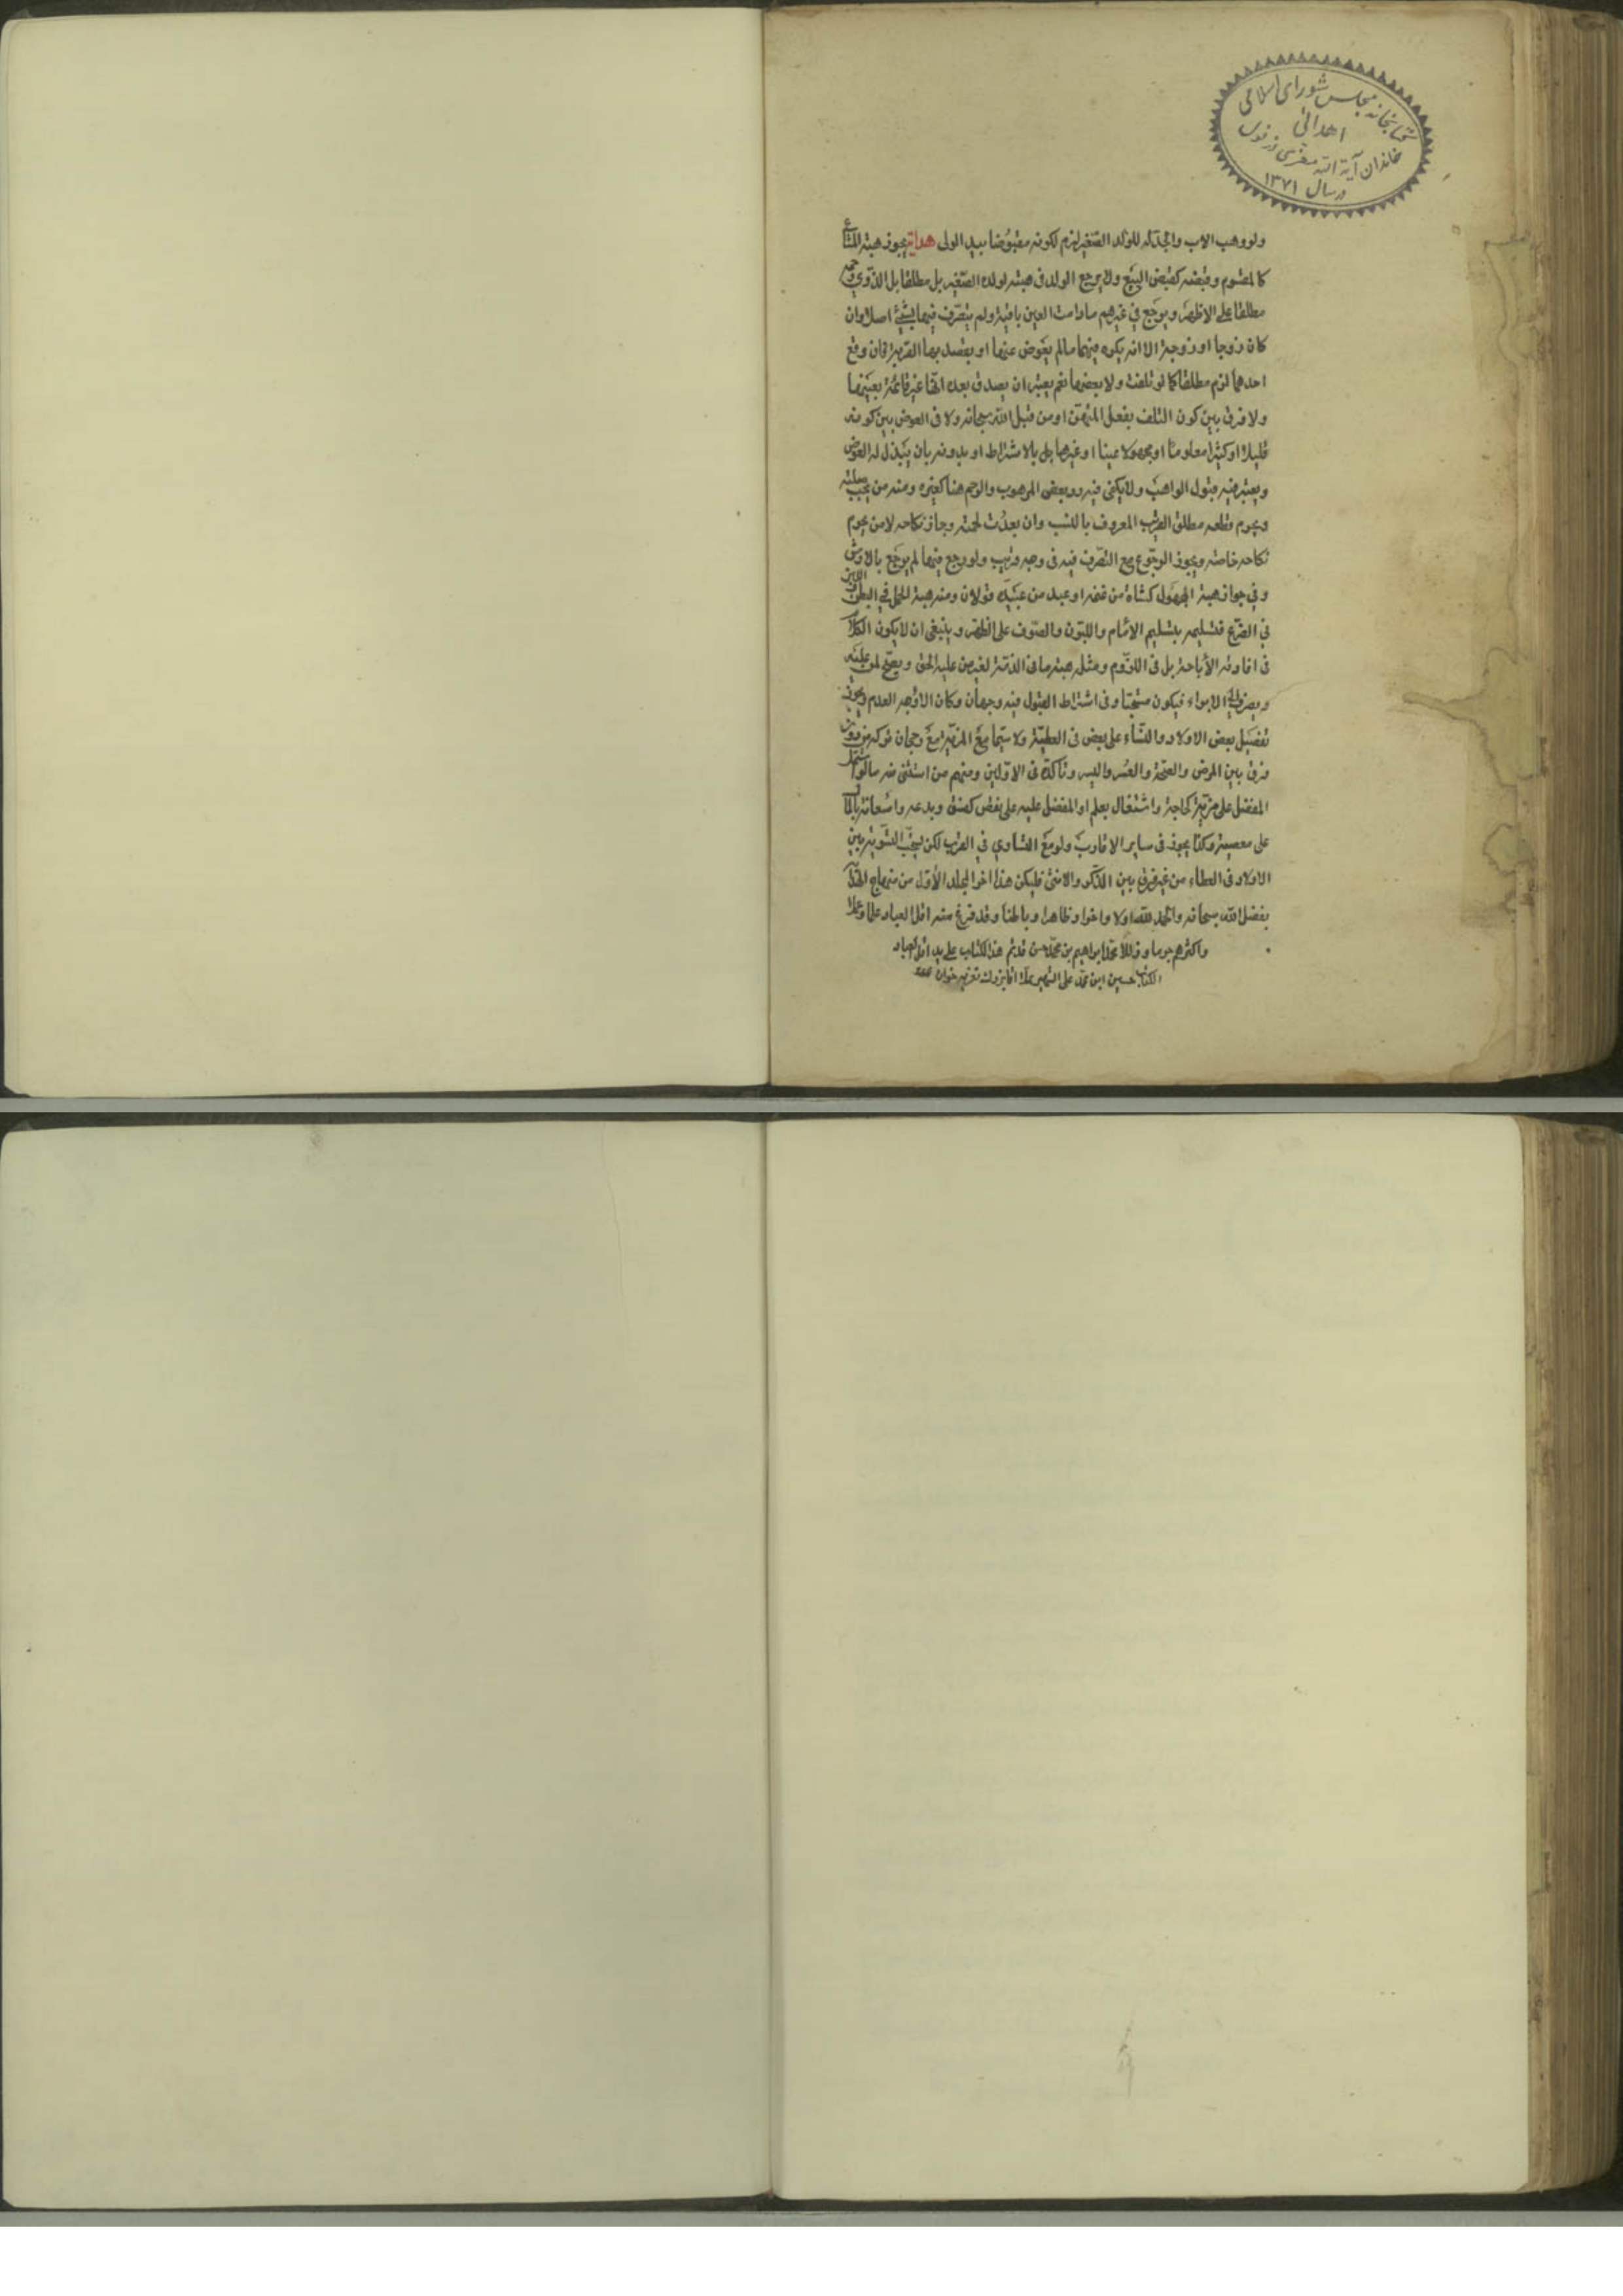 کتابخانه مجلس شورای اسلامی
اهدائی
خاندان آیة الله
در سال ۱۳۷۱
ولو وهب الاب والجد له للولد الصغير لزم لكونه مقبوضا بيد الولی هداية يجوز هبة المشاع
كالمقسوم وقبضه كقبض البيع ولا يرجع الوالد فی هبته لولده الصغير بل مطلقا بل الذوی
مطلقا علی الاظهر ويرجع فی غيرهم مادامت العين باقية ولم يتصرف فيها بشئ اصلا وان
كان زوجا او زوجة الا انه يكره فيهما مالم يعوض عنها او يقصد بها القربة فان وقع
احدهما لزم مطلقا كما لو تلفت ولا بعضها نعم يعتبر ان يصدق بعده انها غير قائمة بعينها
ولا فرق بين كون التلف بفعل المتهب او من قبل الله سبحانه ولا فی العوض بين كونه
قليلا او كثيرا معلوما او مجهولا عينا او غيرها بل بالاشتراط او بدونه بان يبذل له العوض
ويعتبر فيه قبول الواهب ولا يكفی فيه رد بعض الموهوب والرحم هنا كغيره ومنه من يجب صلته
ويحرم قطعه مطلق القريب المعروف بالنسب وان بعدت لحمته وجاز نكاحه لا من يحرم
نكاحه خاصة ويجوز الرجوع مع التصرف فيه فی وجه قريب ولو رجع فيها لم يرجع بالارش
وفی جواز هبة المجهول كشاة من غنمه او عبد من عبيده قولان ومنه هبة الحمل فی البطن واللبن
فی الضرع فتسليمه بتسليم الام واللبون والصوف علی الظهر وينبغی ان لا يكون الكلام
فی افادته الأباحة بل فی اللزوم ومثله هبة ما فی الذمة لغير من عليه الحق ويصح لمن عليه
ويصرف الی الابراء فيكون وفی اشتراط القبول فيه وجهان وكان الاوجه العدم ويجوز
تفضيل بعض الاولاد والنساء علی بعض فی العطية ولا سيما مع المزية مع رجحان تركه من دون
فرق بين المرض والصحة والعسر واليسر وتاكده فی الاولين ومنهم من استثنی منه مالو اشتمل
المفضل علی مزية كحاجة واشتغال بعلم او المفضل عليه علی نقص كفسق وبدعه واستعانة بالمال
علی معصية وكذا يجوز فی ساير الاقارب ولو مع التساوی فی القرب لكن يستحب التسوية بين
الاولاد فی العطاء من غير فرق بين الذكر والانثی فليكن هذا اخر المجلد الأول من منهاج الهداية
بفضل الله سبحانه والحمد لله اولا واخرا وظاهرا وباطنا وقد فرغ منه اقل العباد علما وعملا
واكثرهم جرما وزللا محمد ابراهيم بن محمد حسن قد تم هذا الكتاب علی يد اقل العباد
الكتاب حسين ابن محمد علی الشهير